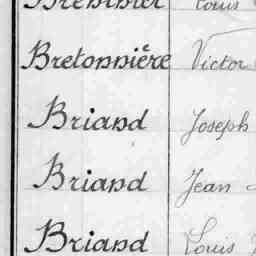 Louis
Bretonnière Victor
Briand Joseph
Briand Jean
Briand Louis